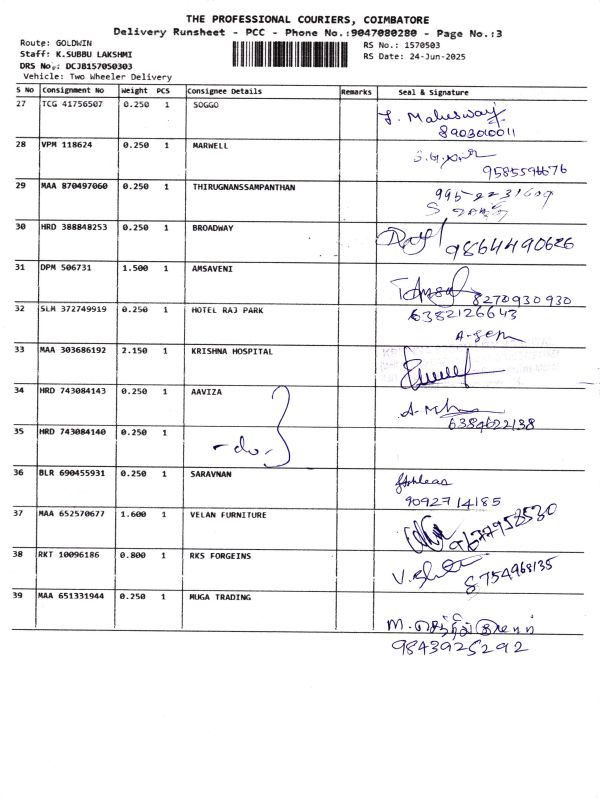 THE PROFESSIONAL COURIERS, COIMBATORE
Delivery Runsheet - PCC - Phone No.:9047080280 - Page No.:3
Route: GOLDWIN RS No.: 1570503
Staff: K.SUBBU LAKSHMI RS Date: 24-Jun-2025
DRS No.: DCJB157050303
Vehicle: Two Wheeler Delivery
S No Consignment No Weight PCS Consignee Details Remarks Seal & Signature
27 TCG 41756507 0.250 1 SOGGO
8903010011
28 VPM 118624 0.250 1 MARWELL
29 MAA 870497060 0.250 1 THIRUGNANSSAMPANTHAN
30 HRD 388848253 0.250 1 BROADWAY
9864490626
31 DPM 506731 1.500 1 AMSAVENI
8270930930
32 SLM 372749919 0.250 1 HOTEL RAJ PARK
6382126643
33 MAA 303686192 2.150 1 KRISHNA HOSPITAL
34 HRD 743084143 0.250 1 AAVIZA
6384622138
35 HRD 743084140 0.250 1 -do-
36 BLR 690455931 0.250 1 SARAVNAN
9092714185
37 MAA 652570677 1.600 1 VELAN FURNITURE
38 RKT 10096186 0.800 1 RKS FORGEINS
8754968135
39 MAA 651331944 0.250 1 MUGA TRADING
9843925292